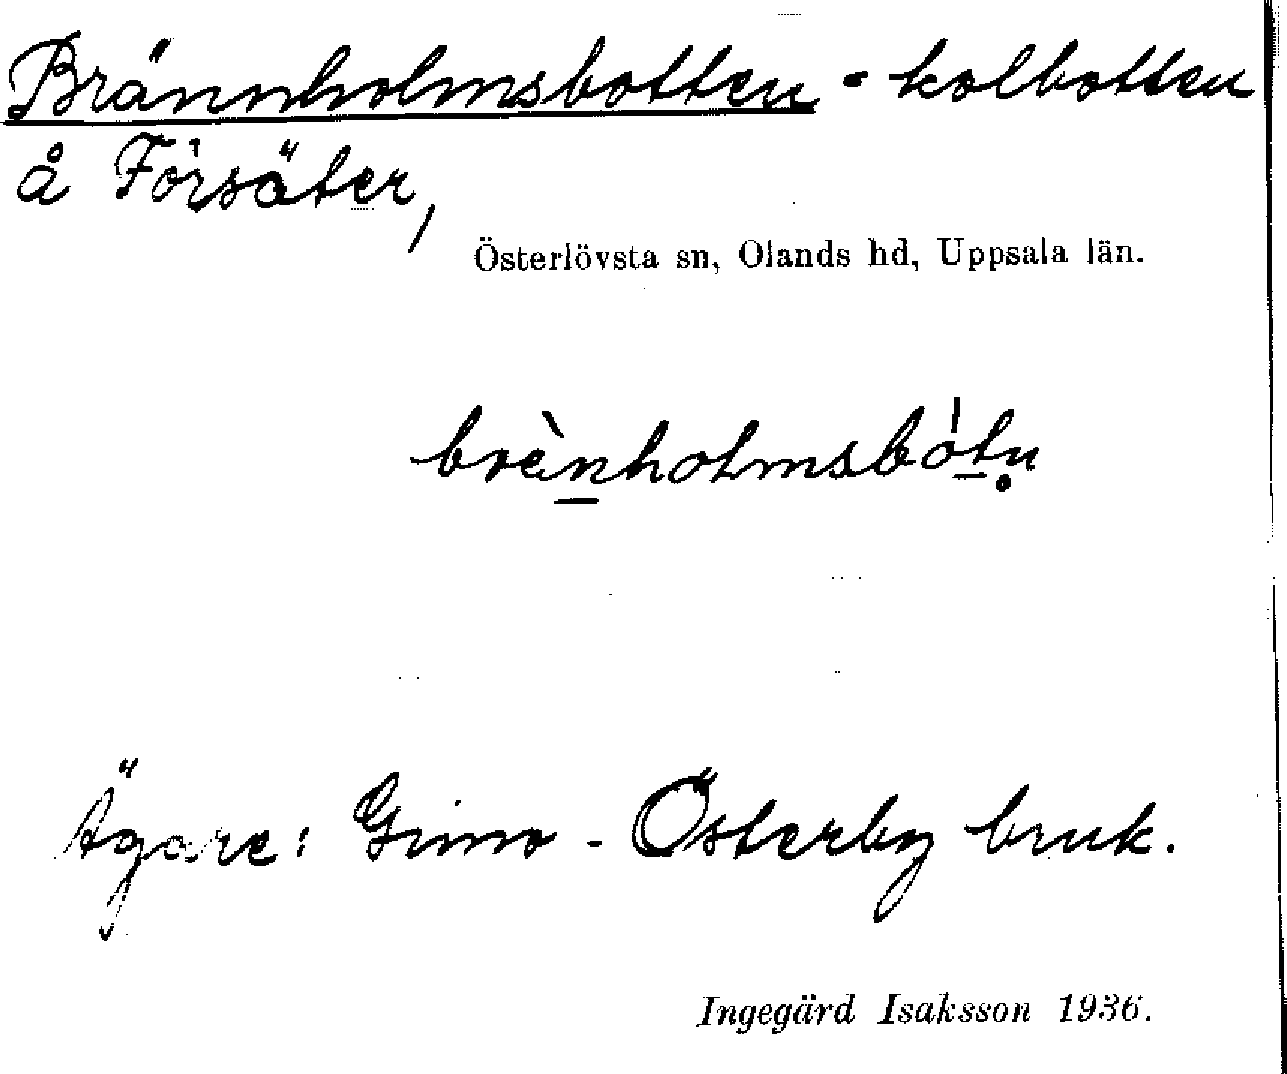 Brännholmsbotten - kolbotten
å Försäter,
Österlövsta sn, Olands hd, Uppsala län.
brènholmsbót̲n̥
Ägare: Gimo - Österby bruk.
Ingegärd Isaksson 1936.